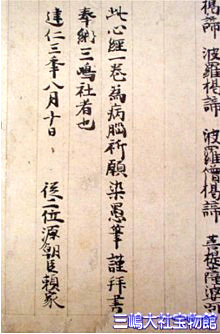 揭諦 波羅揭諦 波羅僧揭諦
此心經一巻為病脳祈願染愚筆謹拜書
奉納三嶋社者也
建仁三年八月十日 從二位源朝臣頼家
三嶋大社宝物館